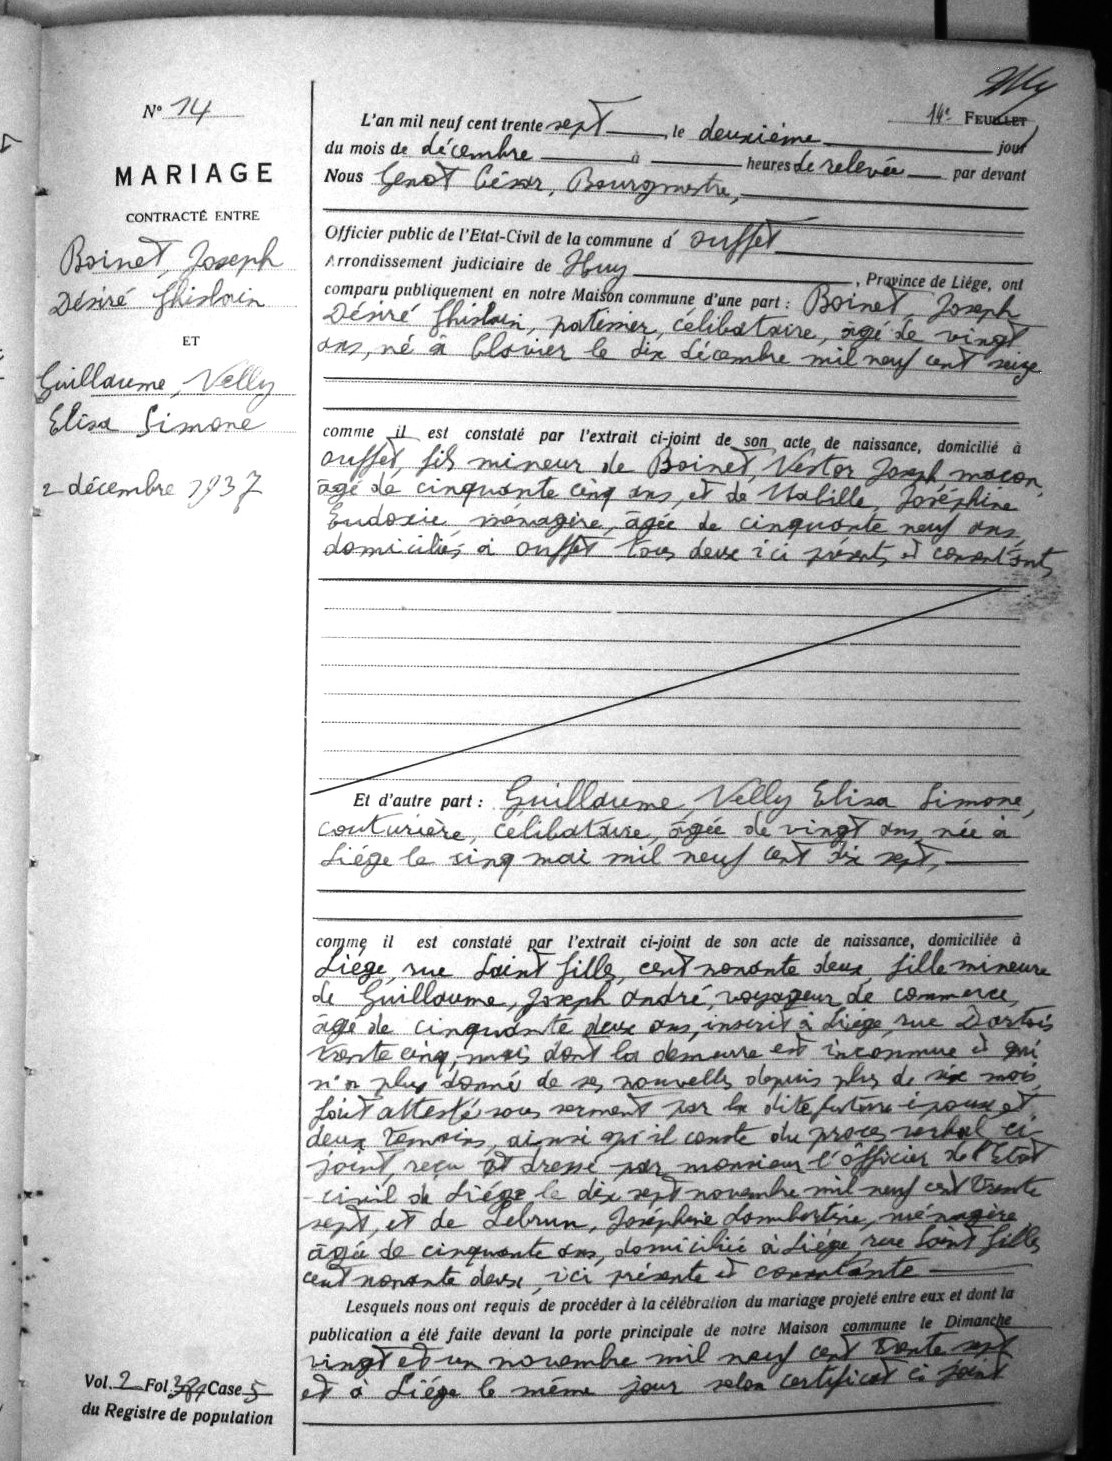 N° 14
MARIAGE
CONTRACTÉ ENTRE
Boinet, Joseph
Désiré Ghislain
ET
Guillaume, Nelly
Elisa Simone
2 décembre 1937
Vol. 2 Fol. Case 5
du Registre de population
14e FEUILLET
L'an mil neuf cent trente sept, le deuxième jour
du mois de décembre à heures de relevée par devant
Nous Genot César, Bourgmestre,
Officier public de l'Etat-Civil de la commune d' Ouffet
Arrondissement judiciaire de Huy, Province de Liége, ont
comparu publiquement en notre Maison commune d'une part : Boinet, Joseph
Désiré Ghislain, patissier, célibataire, âgé de vingt
ans, né à Clavier le dix décembre mil neuf cent seize
comme il est constaté par l'extrait ci-joint de son acte de naissance, domicilié à
Ouffet, fils mineur de Boinet, Nestor Joseph, maçon,
âgé de cinquante cinq ans, et de Mabille, Joséphine
Eudoxie, ménagère, âgée de cinquante neuf ans,
domiciliés à Ouffet tous deux ici présents et consentants
Et d'autre part : Guillaume Nelly Elisa Simone,
couturière, célibataire, âgée de vingt ans, née à
Liége le cinq mai mil neuf cent dix sept,
comme il est constaté par l'extrait ci-joint de son acte de naissance, domiciliée à
Liége, rue Saint Gilles, cent nonante deux, fille mineure
de Guillaume, Joseph André, voyageur de commerce,
âgé de cinquante deux ans, inscrit à Liége, rue Dartois
trente cinq, mais dont la demeure est inconnue et qui
n'a plus donné de ses nouvelles depuis plus de six mois,
fait attesté sous serment par la dite future épouse et
deux témoins, ainsi qu'il conste du procès verbal ci
joint, reçu et dressé par monsieur l'officier de l'Etat
-civil de Liége le dix sept novembre mil neuf cent trente
sept, et de Lebrun, Joséphine Lambertine, ménagère
âgée de cinquante ans, domiciliée à Liége, rue Saint Gilles
cent nonante deux, ici présente et consentante
Lesquels nous ont requis de procéder à la célébration du mariage projeté entre eux et dont la
publication a été faite devant la porte principale de notre Maison commune le Dimanche
vingt et un novembre mil neuf cent trente sept
et à Liége le même jour selon certificat ci joint